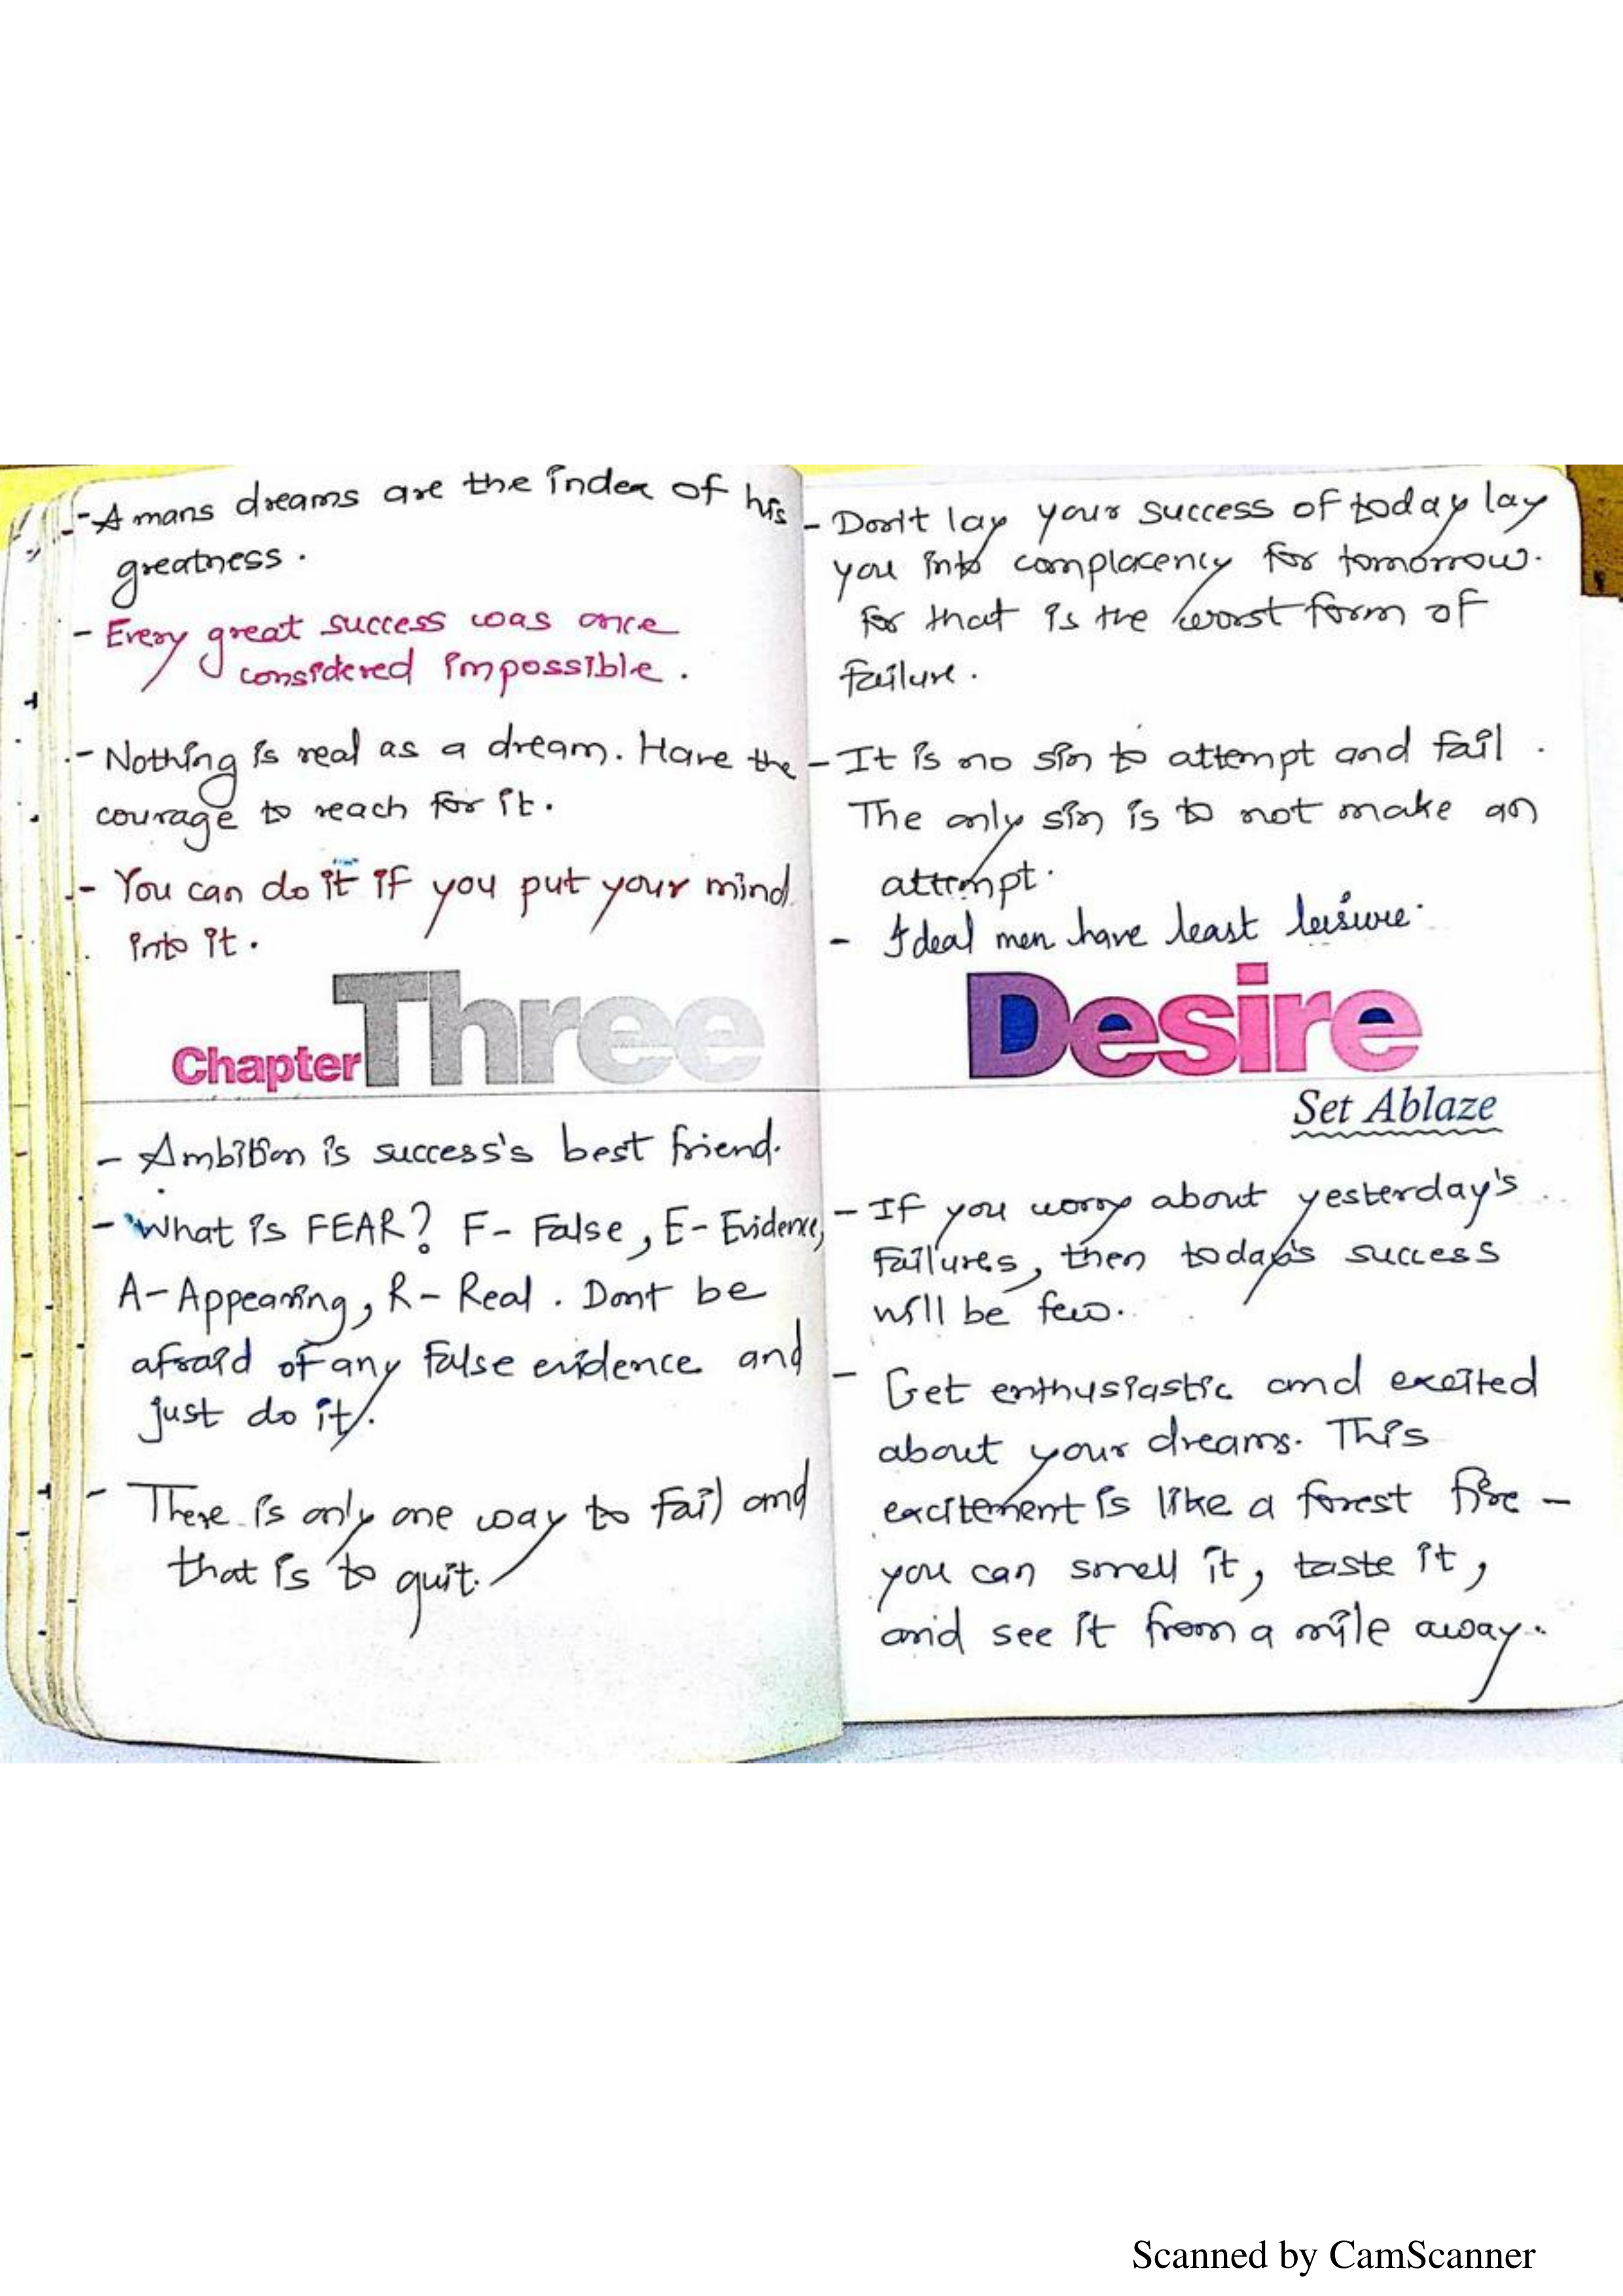 - A mans dreams are the index of his
greatness.
- Every great success was once
considered impossible.
- Nothing is real as a dream. Have the
courage to reach for it.
- You can do it if you put your mind
into it.
Chapter Three
- Ambition is success's best friend.
- What is FEAR? F - False, E - Evidence,
A - Appearing, R - Real. Dont be
afraid of any false evidence and
just do it.
- There is only one way to fail and
that is to quit.
- Don't lay your success of today lay
you into complacency for tomorrow.
For that is the worst form of
failure.
- It is no sin to attempt and fail.
The only sin is to not make an
attempt.
- Ideal men have least leisure.
Desire
Set Ablaze
- If you worry about yesterday's
failures, then today's success
will be few.
- Get enthusiastic and excited
about your dreams. This
excitement is like a forest fire -
you can smell it, taste it,
and see it from a mile away.
Scanned by CamScanner